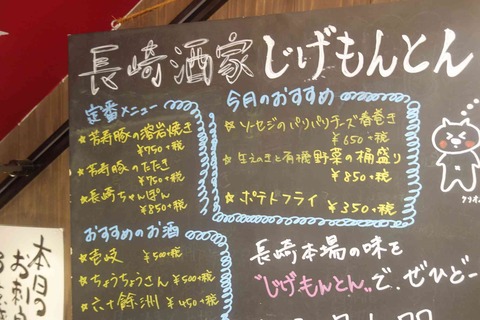 長崎酒家じげもんとん
定番メニュー
★芳寿豚の溶岩焼き
¥750+税
★芳寿豚のたたき
¥750+税
★長崎ちゃんぽん
¥850+税
おすすめのお酒
★壱岐 ¥500+税
★ちょうちょうさん ¥500+税
★六十餘洲 ¥450+税
今月のおすすめ
★ソーセジのパリパリチーズ春巻き
¥650+税
★生えのきと有機野菜の桶盛り
¥850+税
★ポテトフライ ¥350+税
長崎本場の味を
"じげもんとん"で、ぜひどー
本日の
お刺身